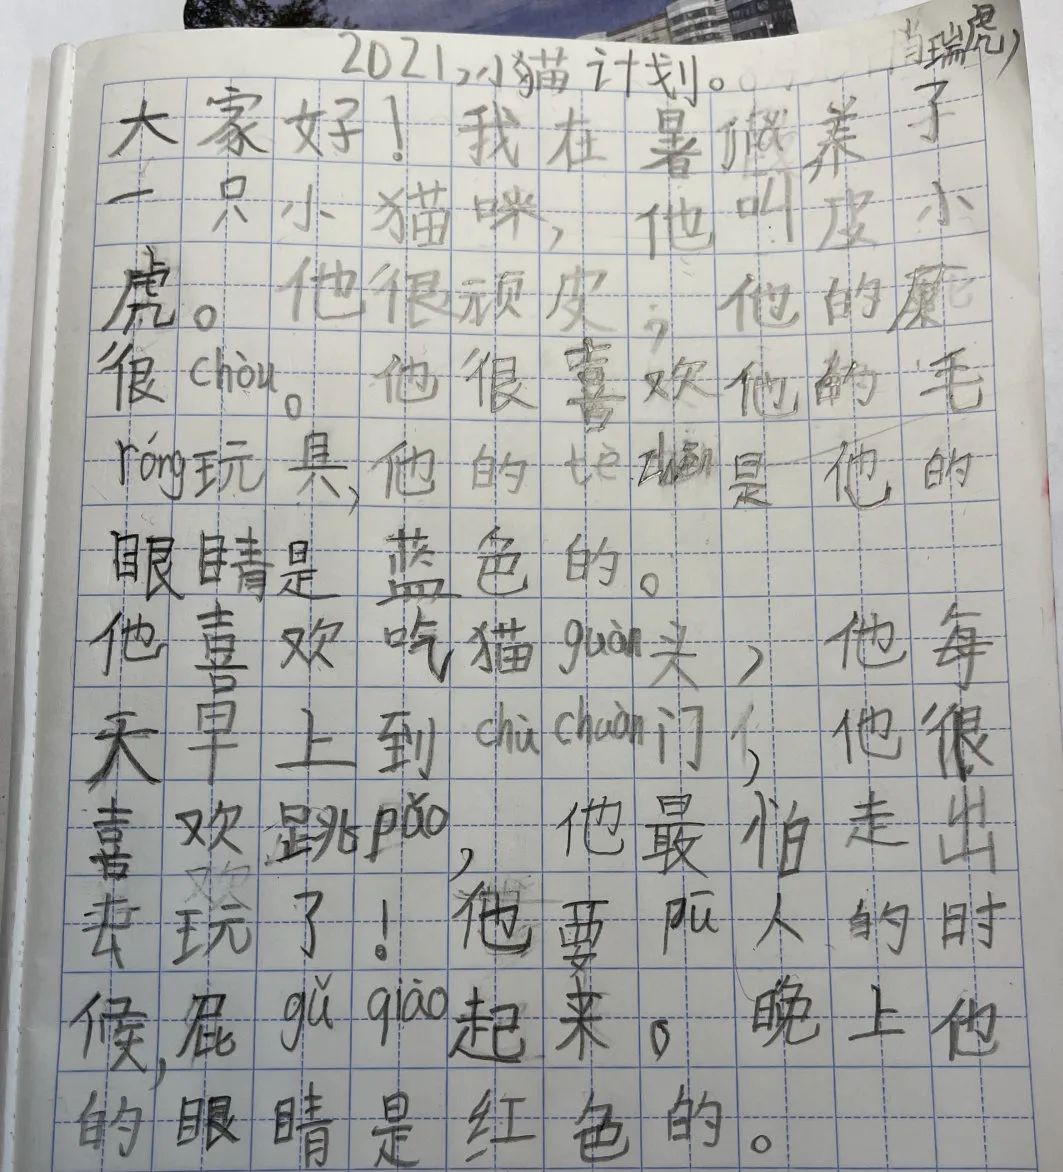 2021,小猫计划。 肖瑞虎,
大家好!我在暑假养了
一只小猫咪,他叫皮小
虎。他很顽皮,他的屁
很chòu。他很喜欢他的毛
róng玩具,他的tè diǎn是他的
眼睛是蓝色的。
他喜欢吃猫guàn头,他每
天早上到chù chuàn门,他很
喜欢跳pǎo,他最怕走出
去玩了!他要pū人的时
候,屁gǔ qiào起来。晚上他
的眼睛是红色的。